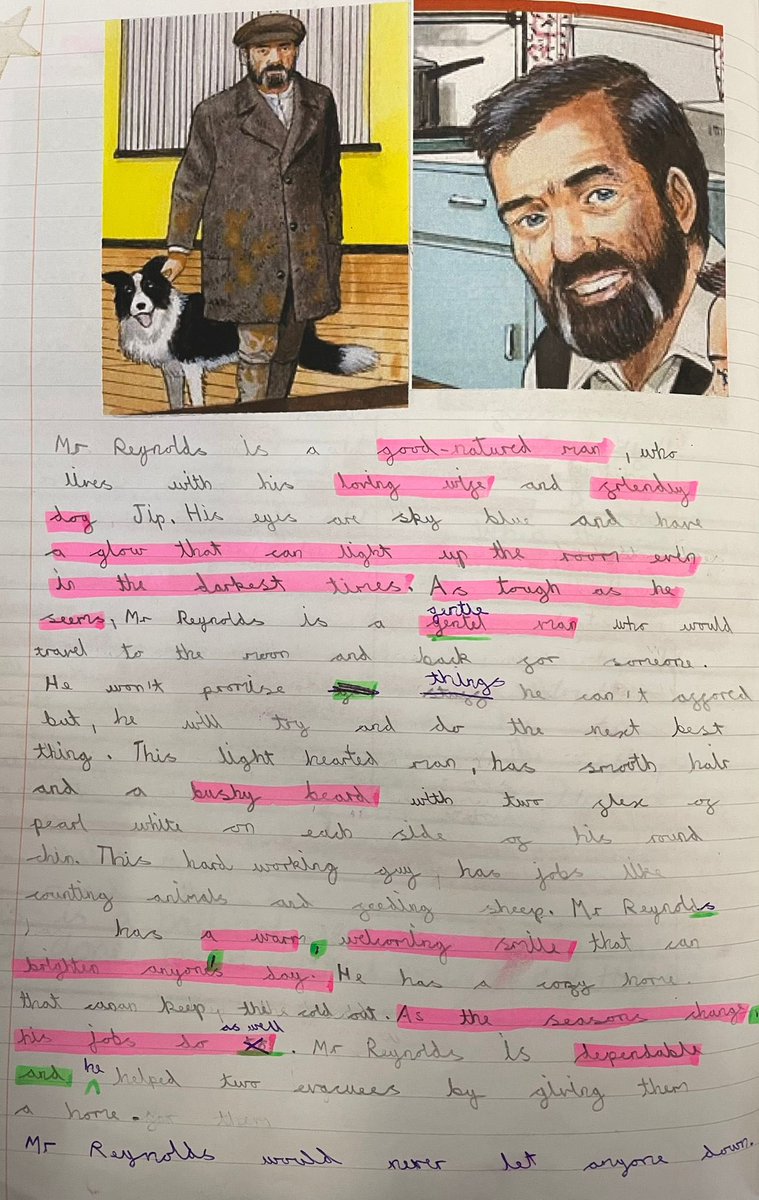 Mr Reynolds is a good-natured man, who
lives with his loving wife and friendly
dog Jip. His eyes are sky blue and have
a glow that can light up the room even
in the darkest times. As tough as he
gentle
seems, Mr Reynolds is a gentel man who would
travel to the moon and back for someone.
things
He won't promise he can't affored
but, he will try and do the next best
thing. This light hearted man, has smooth hair
and a bushy beard with two flex of
pearl white on each side of his round
chin. This hard working guy, has jobs like
counting animals and feeding sheep. Mr Reynolds
has a warm, welcoming smile that can
brighten anyone's day. He has a cozy home.
that can keep the cold out. As the seasons change,
as well
his jobs do. Mr Reynolds is dependable
he
and helped two evacuees by giving them
a home. for them
Mr Reynolds would never let anyone down.